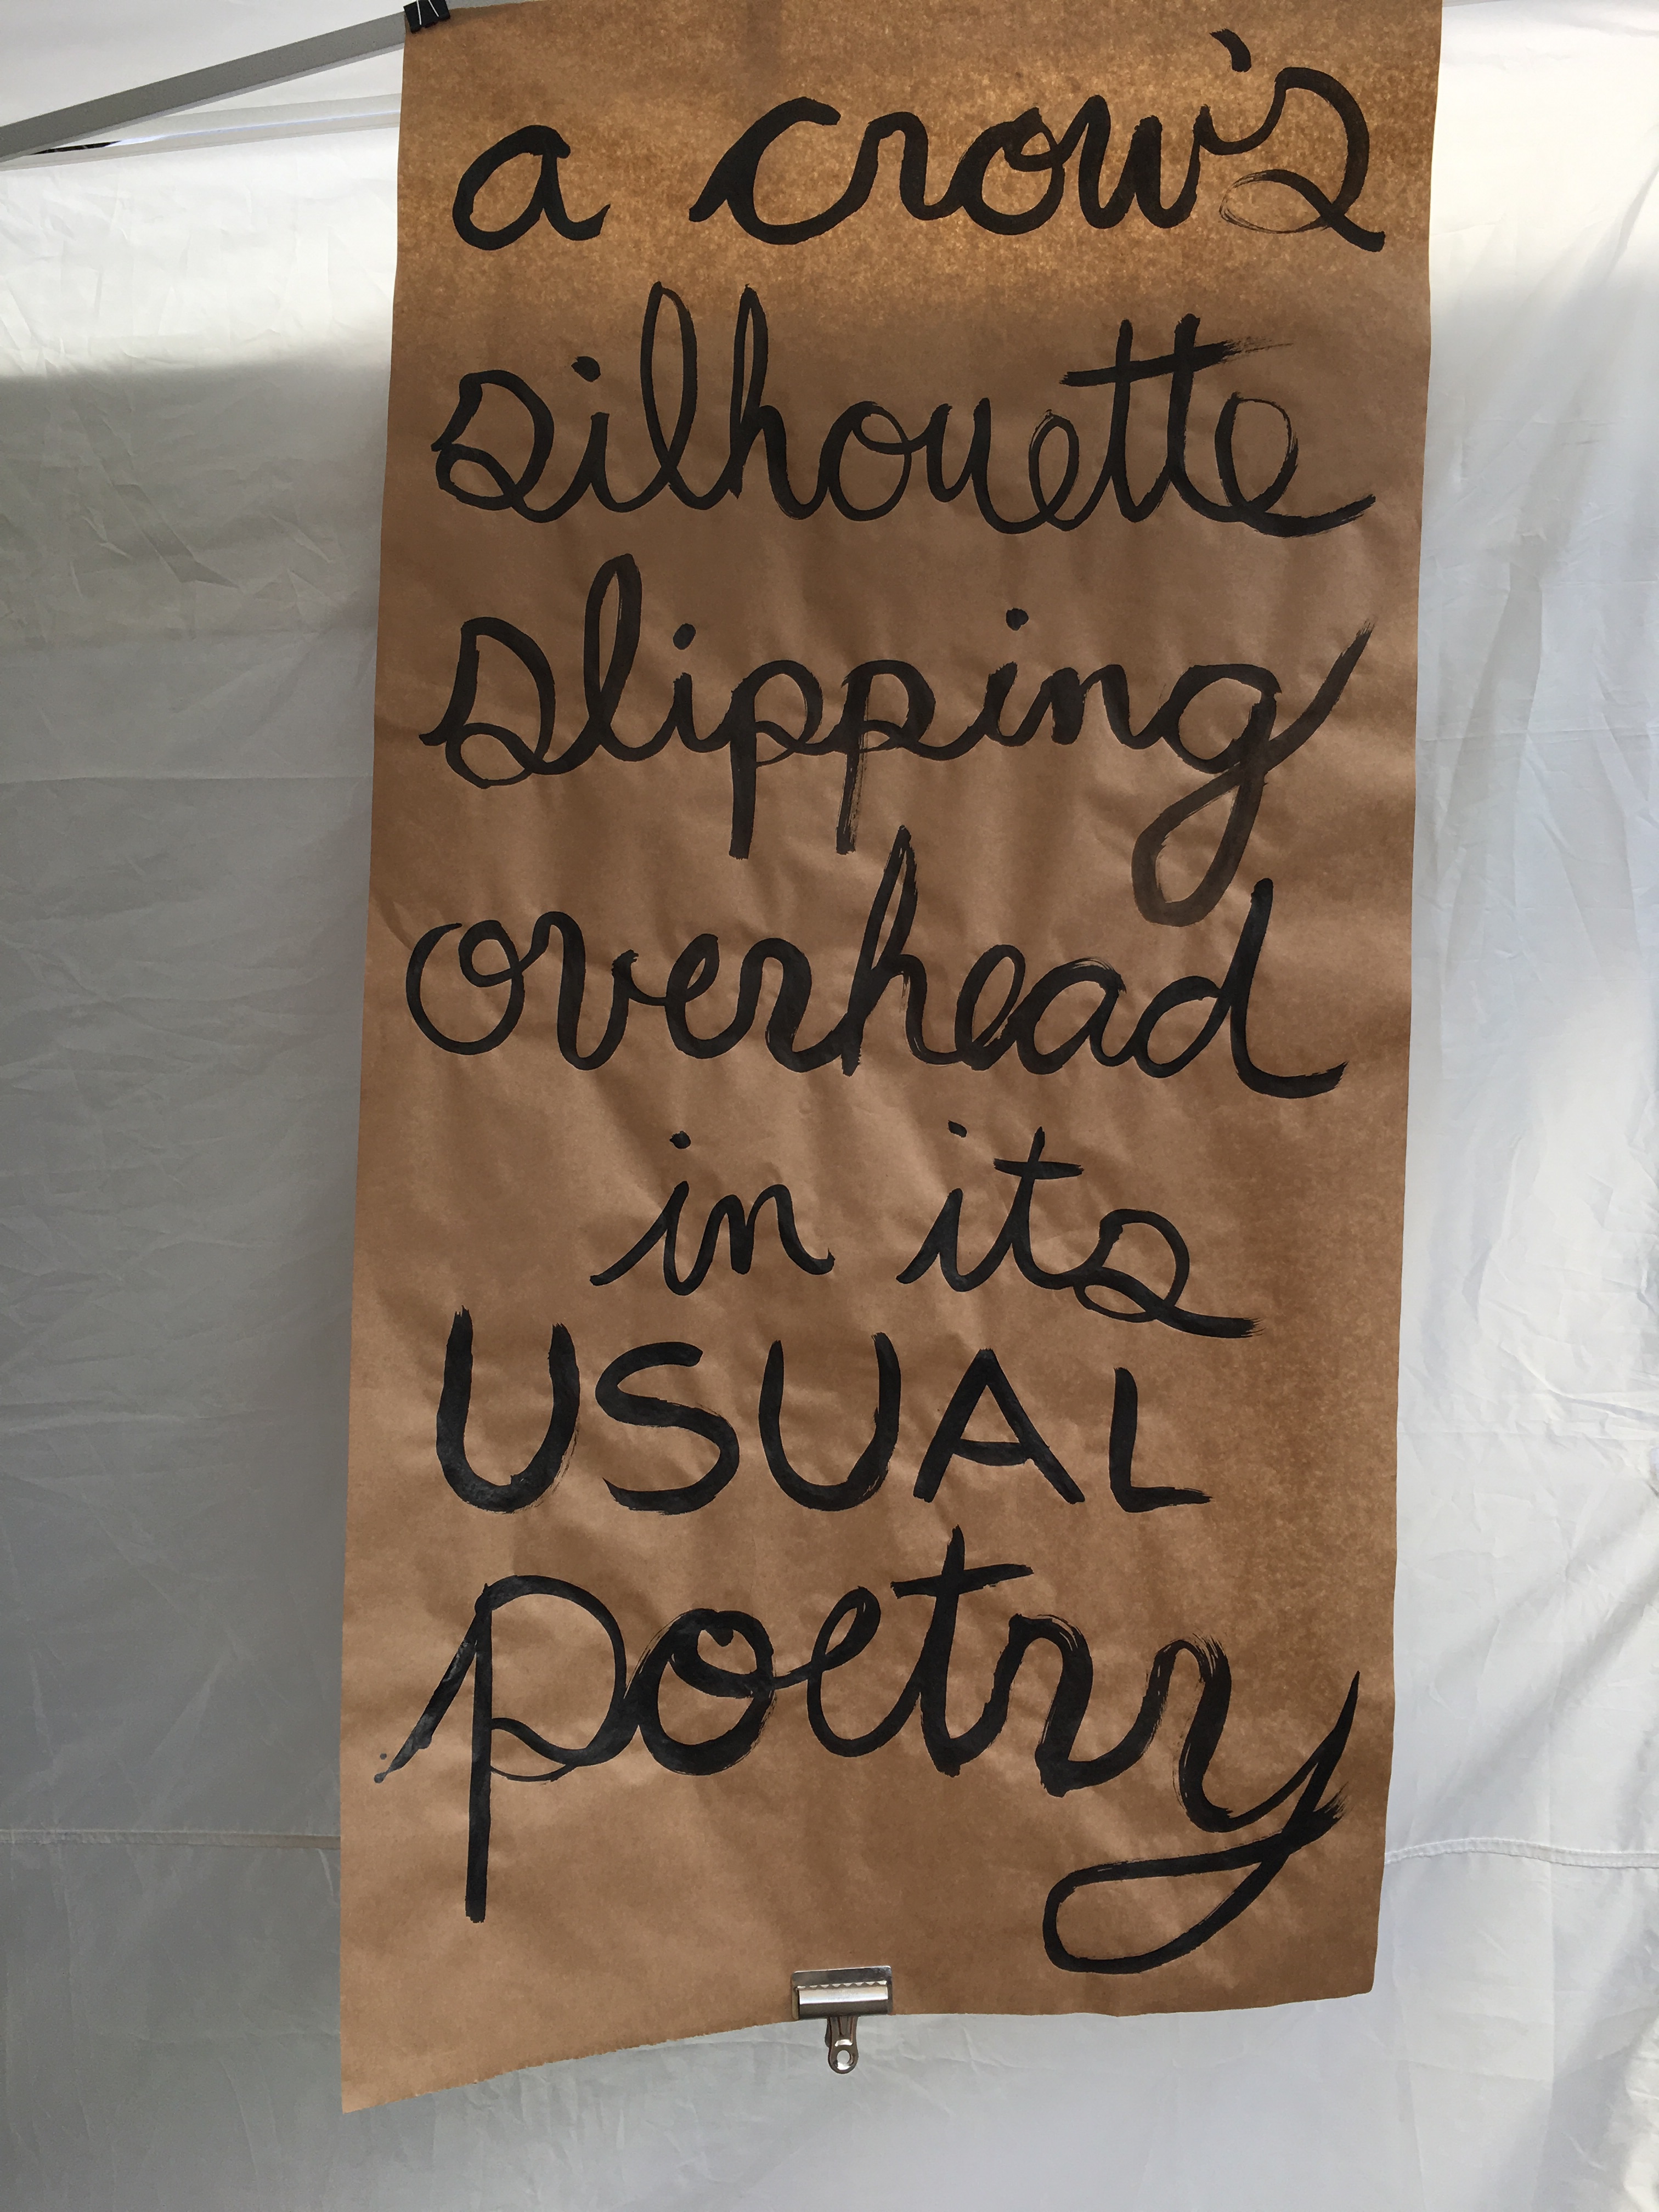 a crow's
silhouette
slipping
overhead
in its
USUAL
poetry